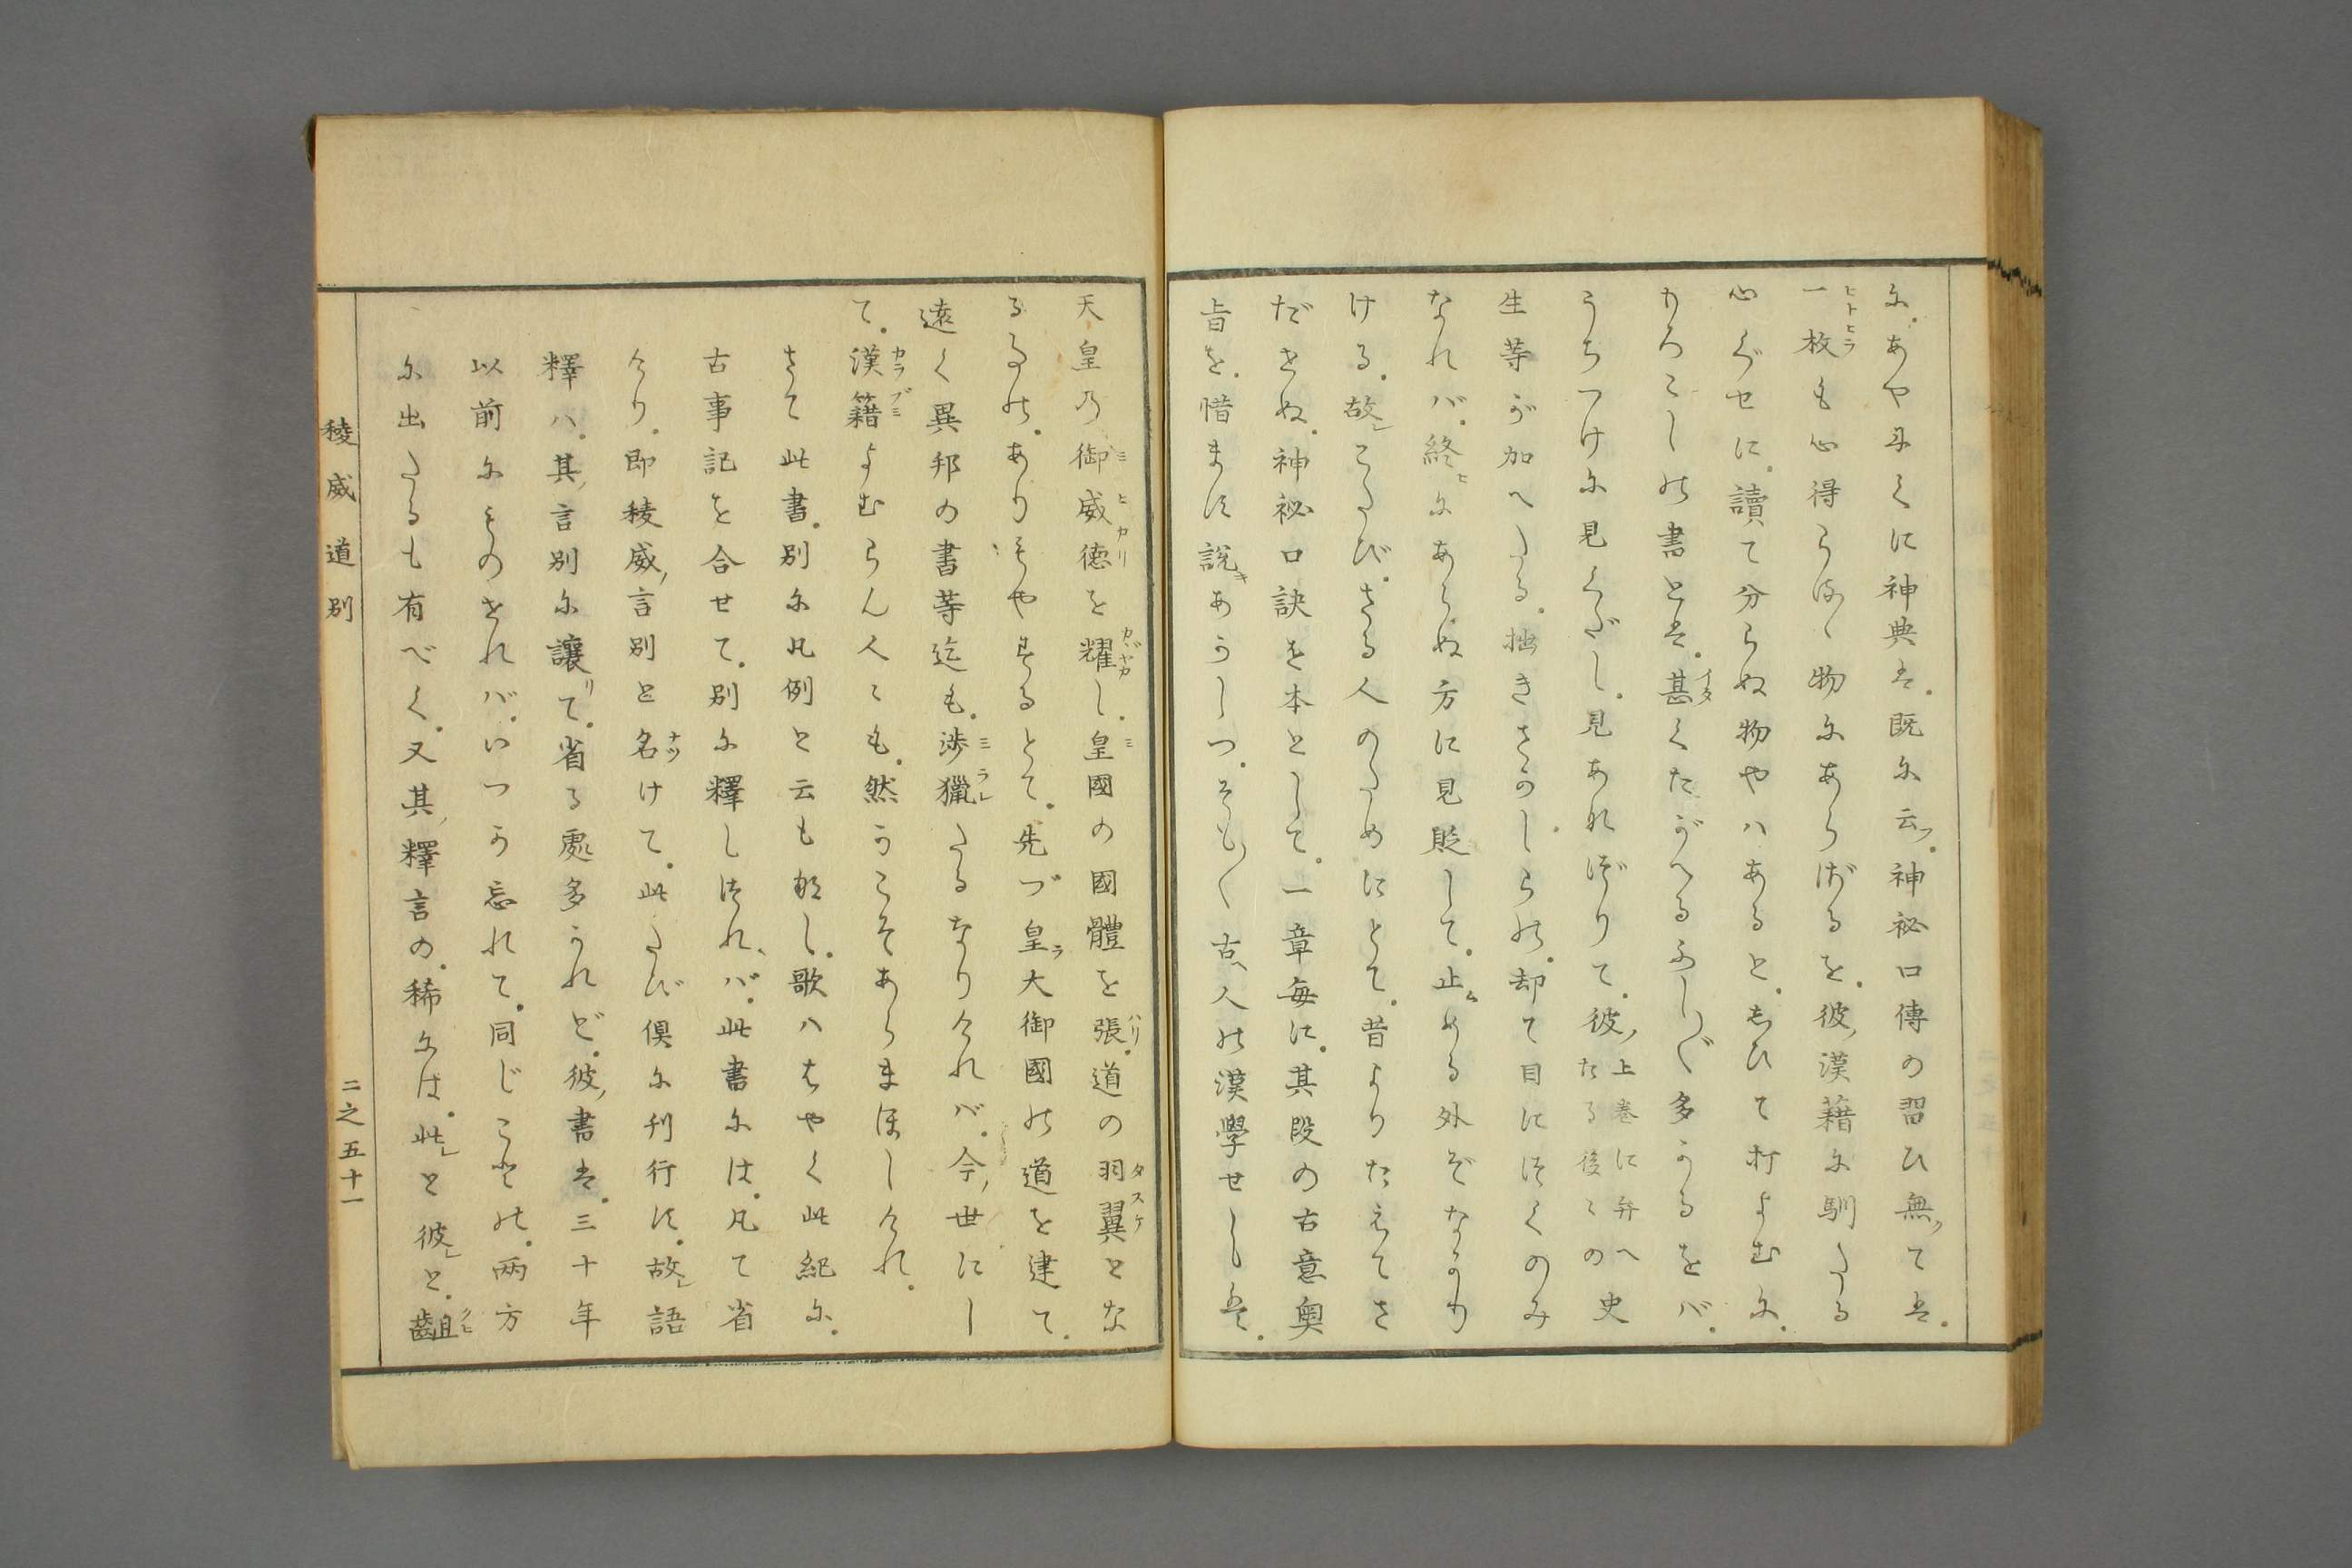 に。あやにくに神典は。既に云フ。神祕口傳の習ひ無クては。
一枚も心得らるゝ物にあらざるを。彼ノ漢籍に馴たる
心ぐせに。讀て分らぬ物やハあると。しひて打よむに。
もろこしの書とは。甚くたがへるふし〴〵多かるをバ。
うちつけに見くだし。見あなづりて。彼ノ上巻に弁へたる後々の史
生等が加へたる。拙きさかしらの。却て目につくのみ
なれバ。終ヒにあらぬ方に見貶して。止ムめる外ぞなかり
ける。故レこたび。さる人のためにとて。昔よりたえてさ
だせぬ。神祕口訣を本として。一章毎に。其段の古意奧
旨を。惜まず説キあかしつ。そも〳〵古ヘ人の漢學せしは。
天皇乃御威德を耀し。皇國の國體を張。道の羽翼とな
るもの。ありもやするとて。先づ皇ラ大御國の道を建て。
遠く異邦の書等迄も。渉獵たるなりけれバ。今ノ世にし
て。漢籍よむらん人々も。然かこそあらまほしけれ。
さて此書。別に凡例と云も無し。歌ハはやく此紀に。
古事記を合せて。別に釋しつれバ。此書には。凡て省
けり。即稜威ノ言別と名けて。此たび倶に刊行す。故レ語
釋ハ。其ノ言別に讓リて。省る處多かれど。彼ノ書は。三十年
以前にものせれバ。いつか忘れて。同じことの。兩方
に出たるも有べく。又其ノ釋言の。稀には。此レと彼レと。齟
稜威道別
二之五十一